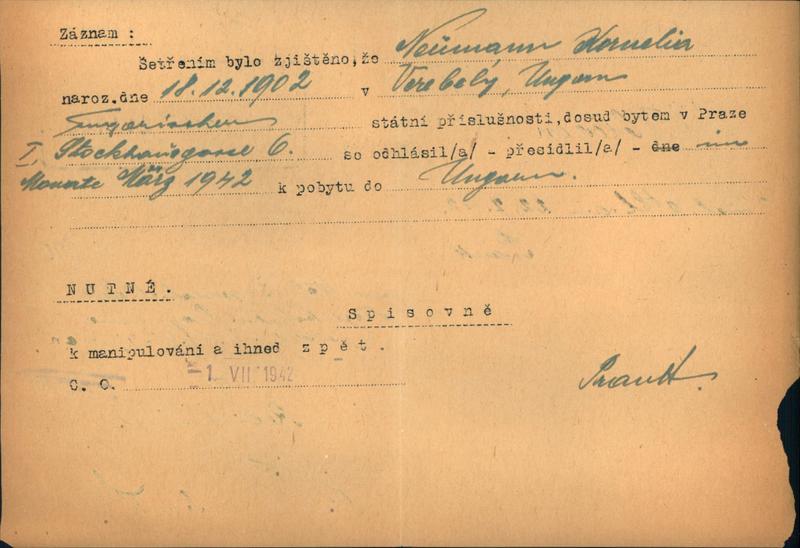 Záznam :
Šetřením bylo zjištěno, že Neumann Kornelia
naroz.dne 18.12.1902 v Verebély, Ungarn
ungarischen státní příslušnosti, dosud bytem v Praze
I, Stockhausgasse 6. se odhlásil/a/ - přesídlil/a/ - dne im
Monate März 1942 k pobytu do Ungarn.
NUTNÉ.
Spisovně
k manipulování a ihned zpět.
O. O. 1. VII 1942